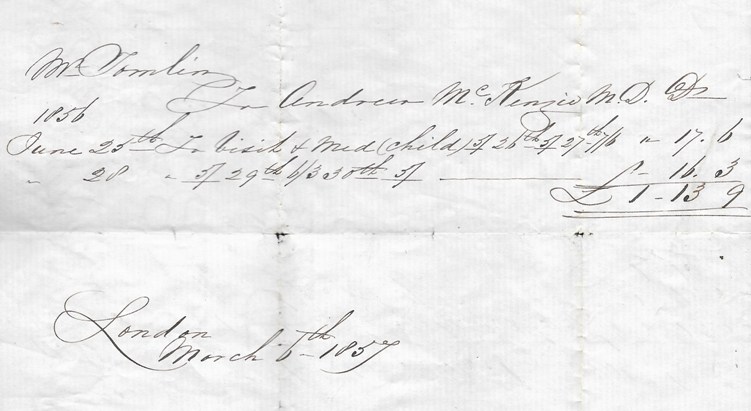 Mr Tomlin
To Andrew McKenzie M.D. Dr
1856
June 25th To Visit & Med (child) 5/ 26th 5/ 27th 7/6 " 17. 6
" 28 " 5/ 29th 6/3 30th 5/ — 16. 3
£ 1 - 13 9
London
March 6th 1857